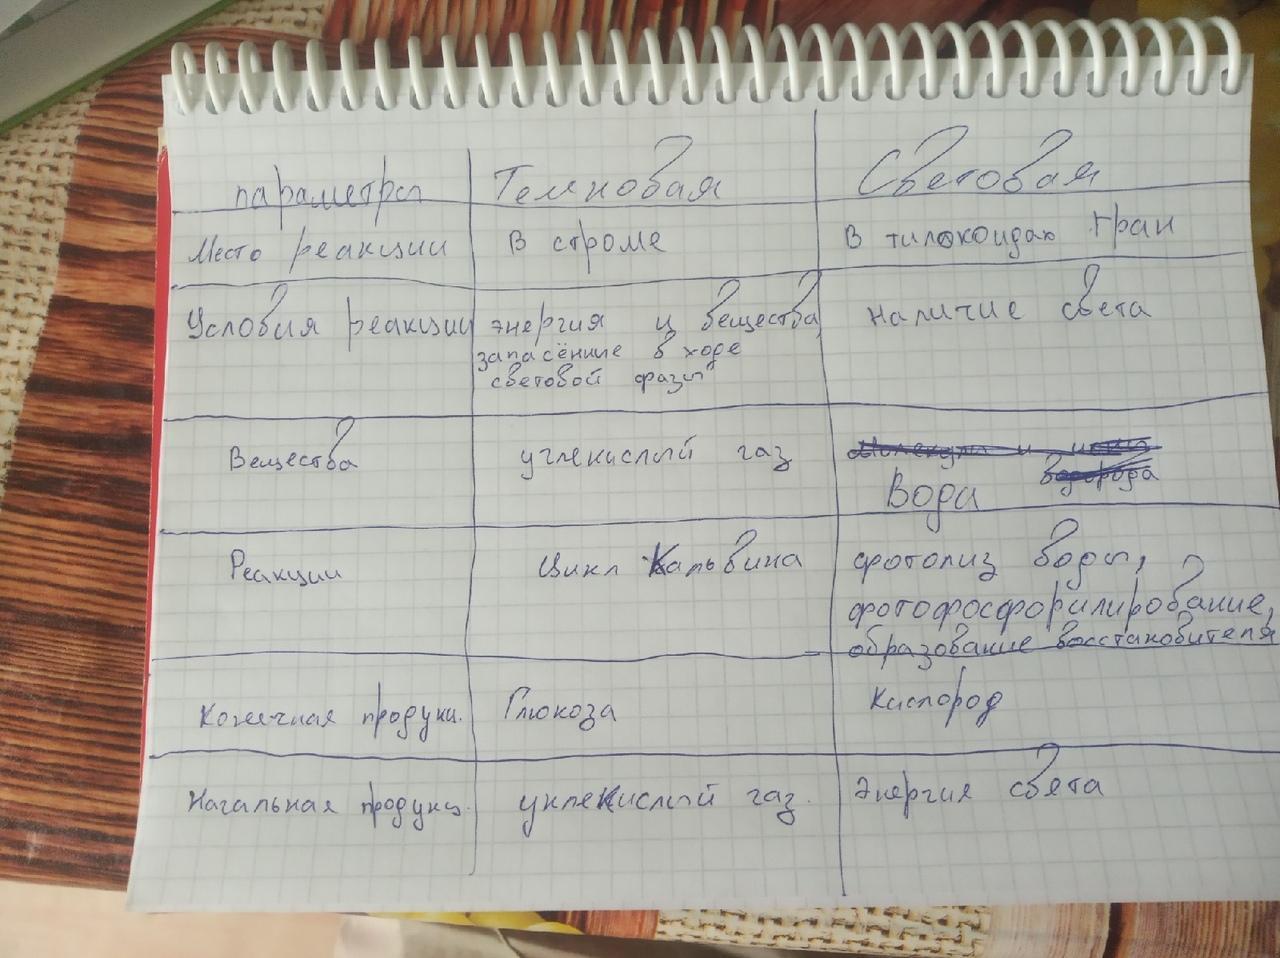 параметры Темновая Световая
Место реакции В строме В тилокоидах гран
Условия реакции энергия и вещества наличие света
запасённые в ходе
световой фазы
Вещества углекислый газ
Вода
Реакции Цикл Кальвина фотолиз воды,
фотофосфорилирование,
образование восстановителя
Конечная продукц. Глюкоза Кислород
Начальная продукц. уклекислый газ. Энергия света